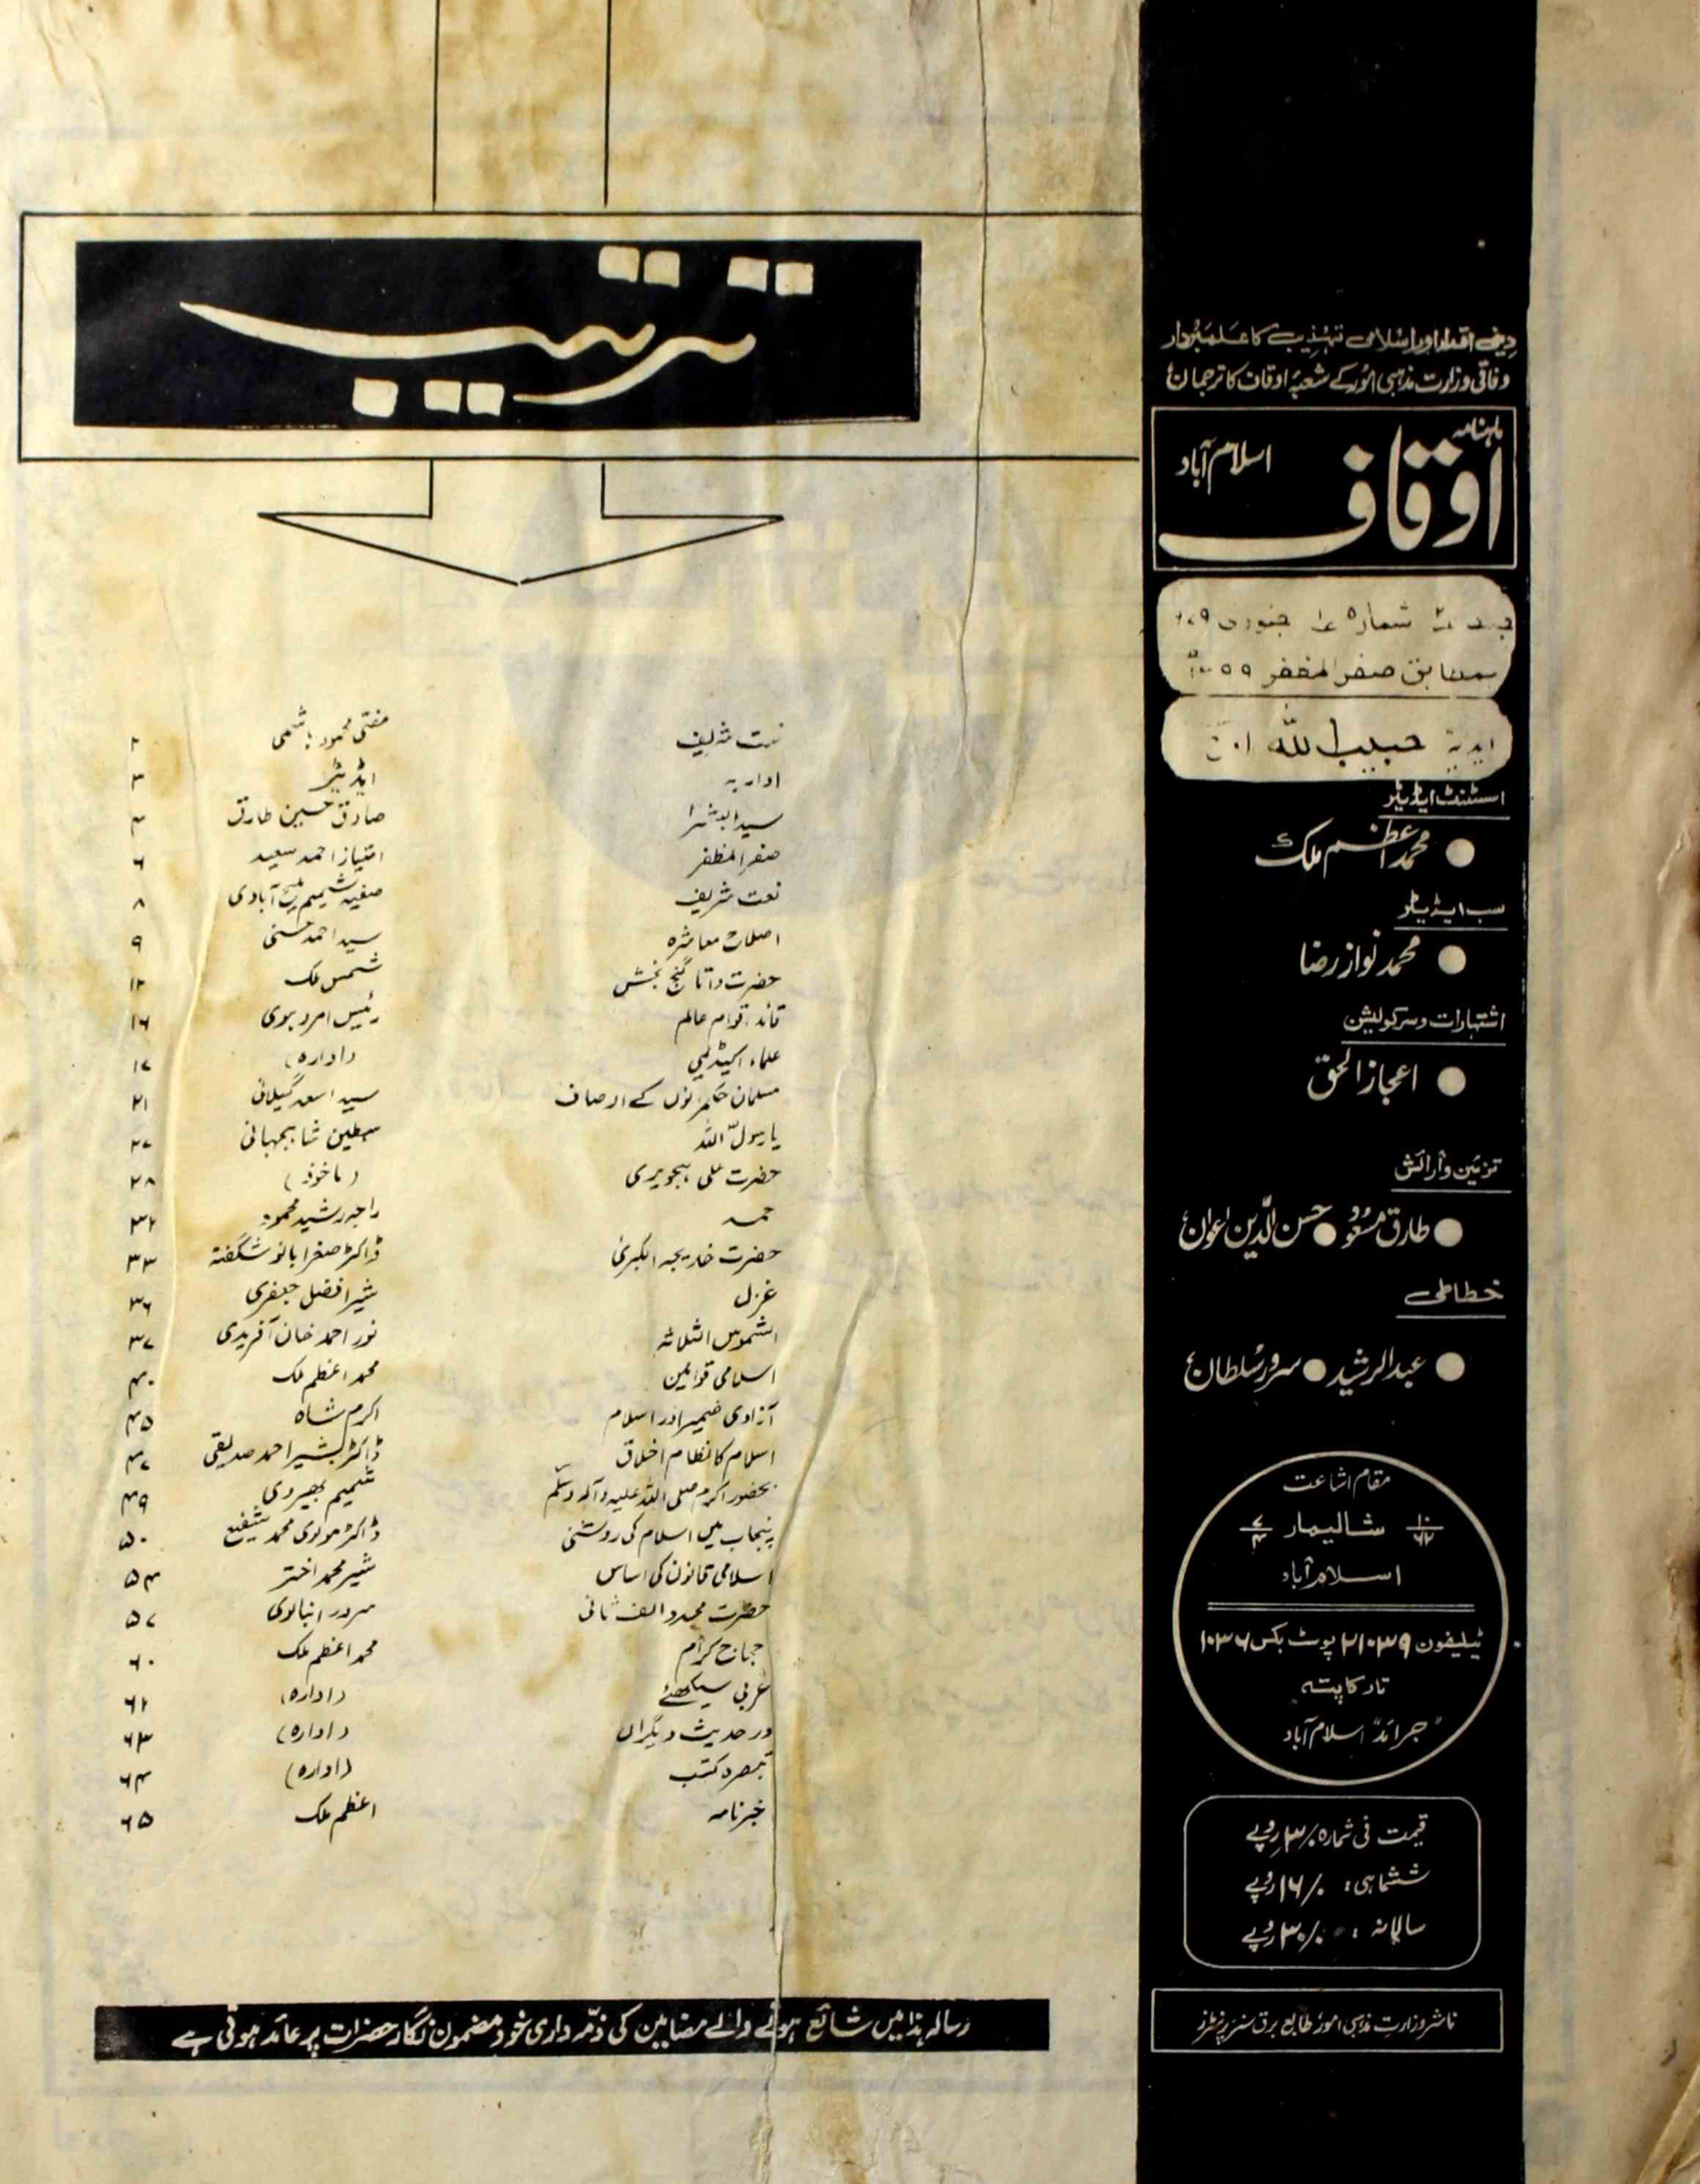 دینی اقدار اور اسلامی تہذیب کا علمبردار
وفاقی وزارت مذہبی امور کے شعبۂ اوقاف کا ترجمان
ماہنامہ
اوقاف
اسلام آباد
شمارہ ۱ جنوری ۷۹ء
بمطابق صفر المظفر
حبیب اللہ
اسسٹنٹ ایڈیٹر
● محمد اعظم ملک
سب ایڈیٹر
● محمد نواز رضا
اشتہارات و سرکولیشن
● اعجاز الحق
تزئین و آرائش
● طارق مسعود ● حسن الدین اعوان
خطاطی
● عبدالرشید ● سرور سلطان
مقام اشاعت
۱۰/۶۲ شالیمار ۷/۴
اسلام آباد
ٹیلیفون ۲۱۰۳۹ پوسٹ بکس ۱۰۳۶
تار کا پتہ
"جرائد" اسلام آباد
قیمت فی شمارہ ۳/۰ روپے
ششماہی: ۱۶/۰ روپے
سالانہ: ۳۰/۰ روپے
ناشر وزارت مذہبی امور طابع برق سنز پرنٹرز
ترتیب
نعت شریف مفتی محمود ہاشمی ۲
اداریہ ایڈیٹر ۳
سید الشہدا صادق حسین طارق ۴
صفر المظفر امتیاز احمد سعید ۶
نعت شریف صفیہ شمیم ملیح آبادی ۸
اصلاح معاشرہ سید احمد حسنی ۹
حضرت داتا گنج بخش شمس ملک ۱۲
قائد اقوام عالم رئیس امروہوی ۱۶
علماء اکیڈیمی (ادارہ) ۱۷
مسلمان حکمرانوں کے اوصاف سید اسعد گیلانی ۲۱
یا رسول اللہ سبطین شاہجہانی ۲۷
حضرت علی ہجویری (ماخوذ) ۲۸
حمد راجہ رشید محمود ۳۲
حضرت خدیجہ الکبریٰ ڈاکٹر صغرا بانو شگفتہ ۳۳
غزل شیر افضل جعفری ۳۶
الشموس الثلاثہ نور احمد خان آفریدی ۳۷
اسلامی قوانین محمد اعظم ملک ۴۰
آزادی ضمیر اور اسلام اکرم شاہ ۴۵
اسلام کا نظام اخلاق ڈاکٹر بشیر احمد صدیقی ۴۷
بحضور اکرم صلی اللہ علیہ وآلہ وسلم شمیم بھیروی ۴۹
پنجاب میں اسلام کی روشنی ڈاکٹر مولوی محمد شفیع ۵۰
اسلامی قانون کی اساس شیر محمد اختر ۵۴
حضرت مجدد الف ثانی سرور انبالوی ۵۷
حجاج کرام محمد اعظم ملک ۶۰
عربی سیکھئے (ادارہ) ۶۲
در حدیث دیگراں (ادارہ) ۶۳
تبصرہ کتب (ادارہ) ۶۴
خبرنامہ اعظم ملک ۶۵
رسالہ ہذا میں شائع ہونے والے مضامین کی ذمہ داری خود مضمون نگار حضرات پر عائد ہوتی ہے